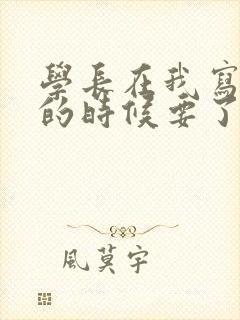 學長在我寫
的時候要了
風莫宇